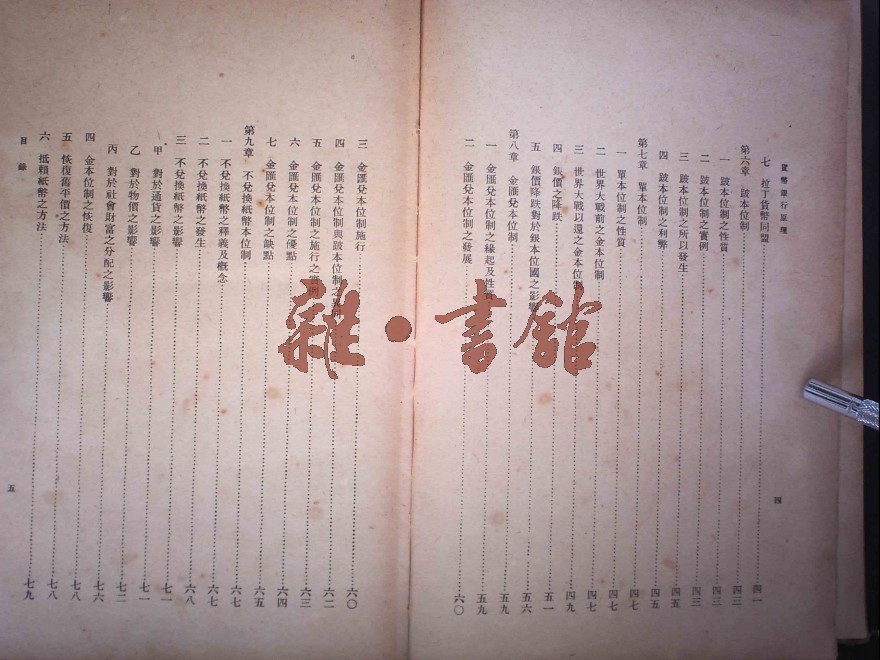 貨幣銀行原理
七 拉丁貨幣同盟 四一
第六章 跛本位制 四三
一 跛本位制之性質 四三
二 跛本位制之實例 四三
三 跛本位制之所以發生 四五
四 跛本位制之利弊 四五
第七章 單本位制 四七
一 單本位制之性質 四七
二 世界大戰前之金本位制 四七
三 世界大戰以還之金本位制 四九
四 銀價之降跌 五一
五 銀價降跌對於銀本位國之影響 五六
第八章 金匯兌本位制 五九
一 金匯兌本位制之緣起及性質 五九
二 金匯兌本位制之發展 六〇
四
三 金匯兌本位制施行 六〇
四 金匯兌本位制與跛本位制之 六二
五 金匯兌本位制施行之實例 六三
六 金匯兌本位制之優點 六四
七 金匯兌本位制之缺點 六五
第九章 不兌換紙幣本位制 六七
一 不兌換紙幣之釋義及概念 六七
二 不兌換紙幣之發生 六八
三 不兌換紙幣之影響 七一
甲 對於通貨之影響 七一
乙 對於物價之影響 七二
丙 對於社會財富之分配之影響 七六
四 金本位制之恢復 七八
五 恢復舊平價之方法 七八
六 抵賴紙幣之方法 七九
目錄
五
雜·書館